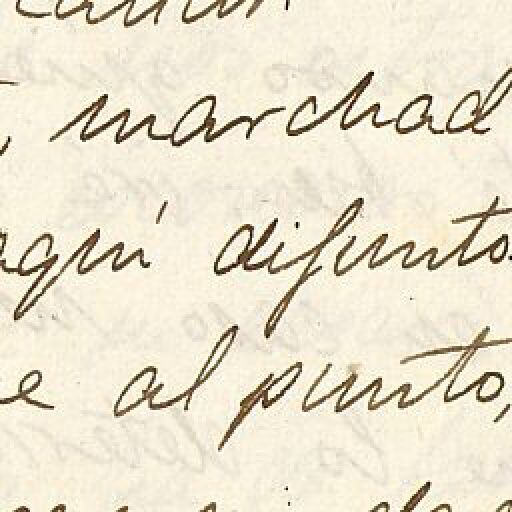 , marchad
aquí difunto
e al punto,